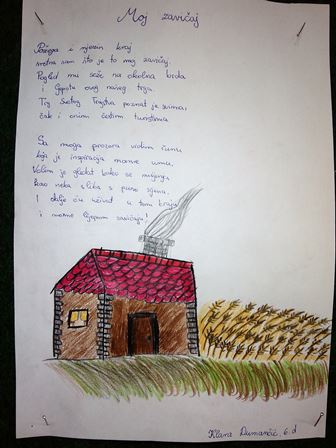 Moj zavičaj
Požega i njezin kraj
sretna sam što je to moj zavičaj.
Pogled mi seže na okolna brda
i ljepota ovog našeg trga.
Trg Svetog Trojstva poznat je svima,
čak i onim čestim turistima.
Sa moga prozora vidim šumu
koja je inspiracija mome umu.
Volim je gledat kako se mijenja,
kao neka slika s puno sjena.
I dalje ću uživat u tom kraju
i mome lijepom zavičaju!
Klara Dumančić 6.d